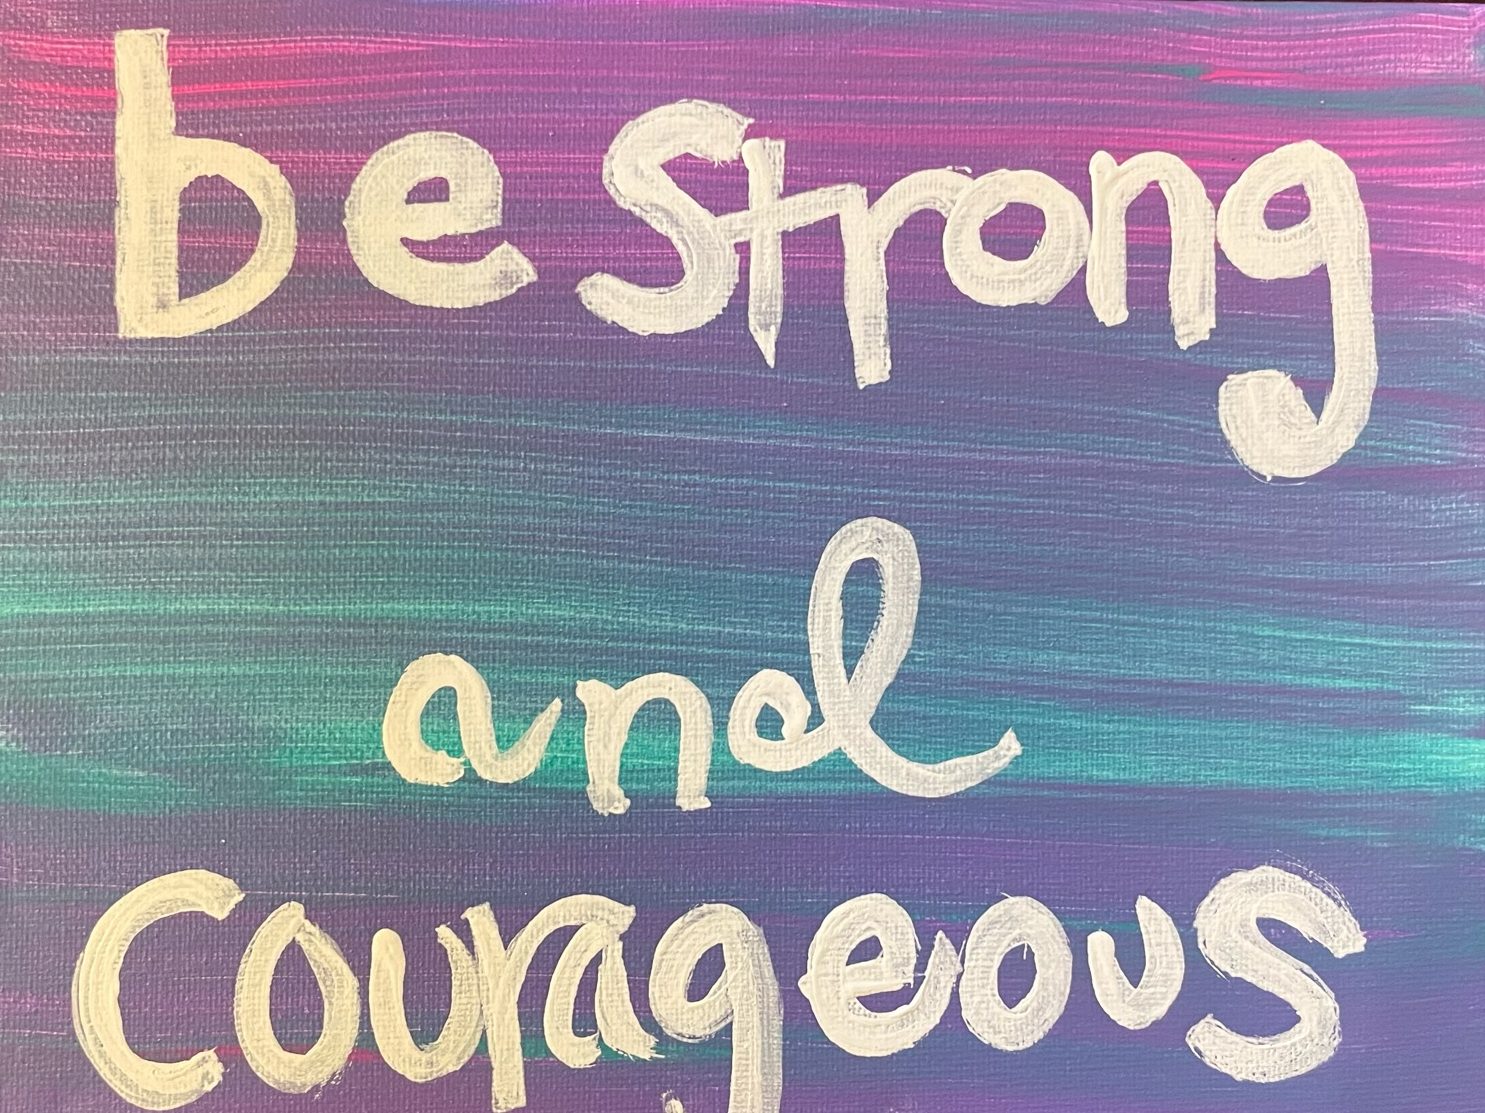 be strong
and
Courageous